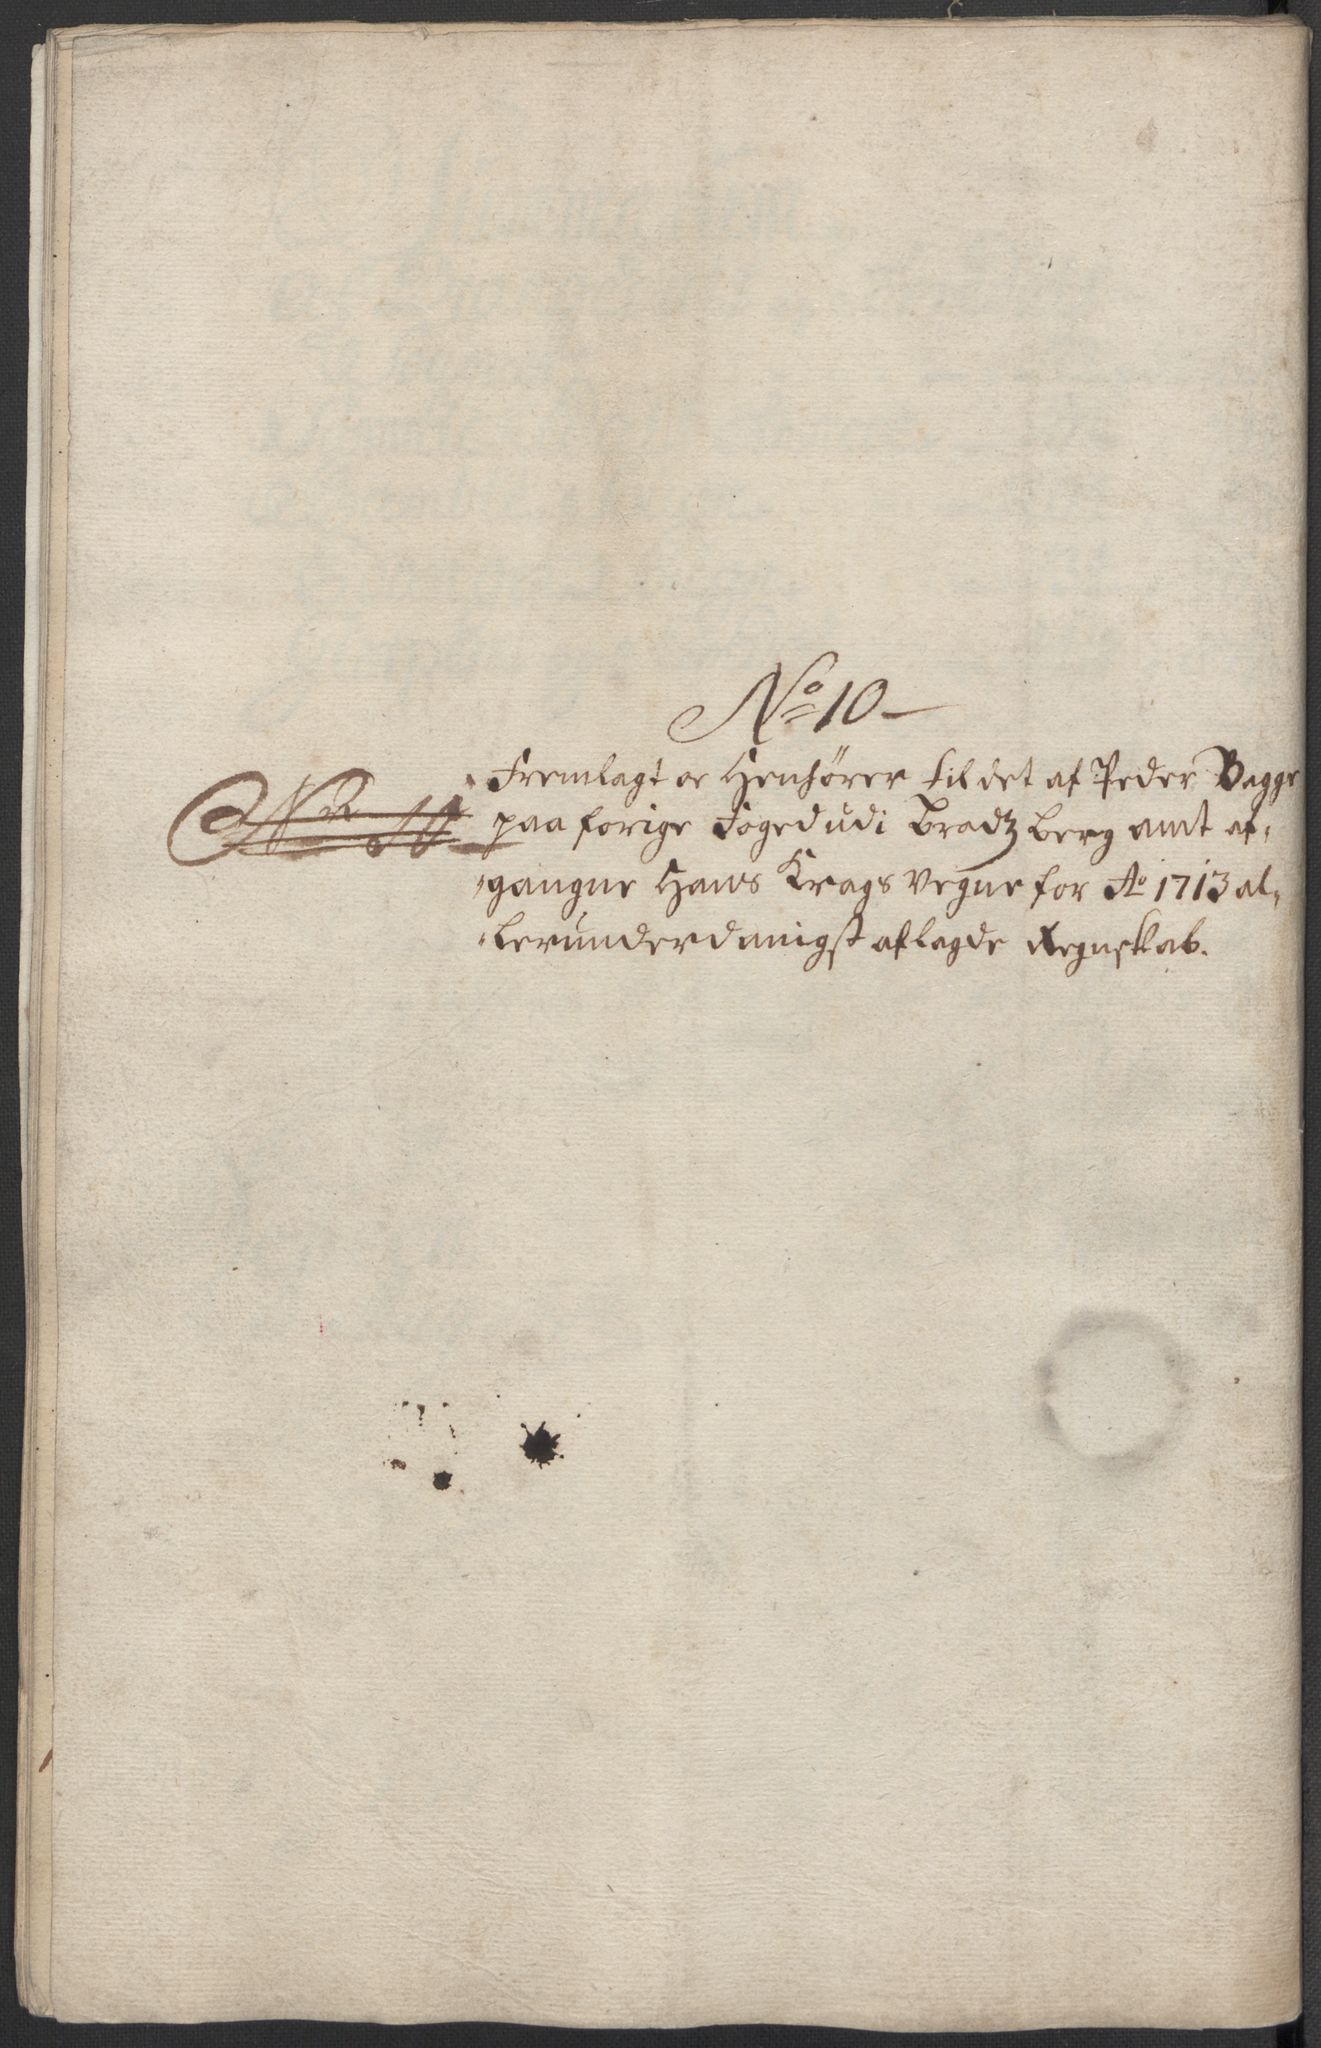 No 10
Fremlagt oc Henhører til det af Peder Bagge
paa forige Foged udi Bradtzberg amt af-
gangne Hans Krags vegne for Ao 1713 al-
lerunderdanigst aflagde Regnskab.